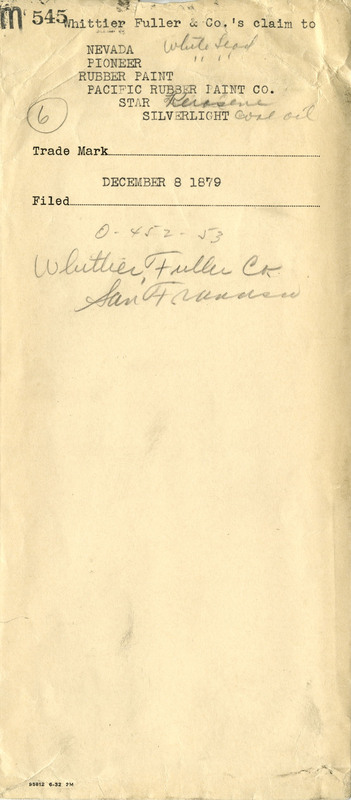 m 545 Whittier Fuller & Co.'s claim to
NEVADA White Lead
PIONEER " "
RUBBER PAINT
PACIFIC RUBBER PAINT CO.
STAR Kerosene
6 SILVERLIGHT Coal oil
Trade Mark
DECEMBER 8 1879
Filed
0-452-53
Whittier, Fuller Co.
San Francisco
55812 6-32 7M